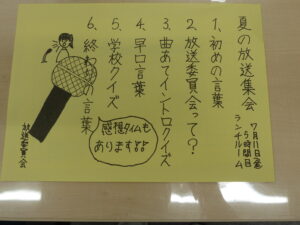 夏の放送集会
7月11日金
5時間目
ランチルーム
1、初めの言葉
2、放送委員会って?
3、曲あてイントロクイズ
4、早口言葉
5、学校クイズ
6、終わりの言葉
感想タイムも
ありますよ
放送委員会